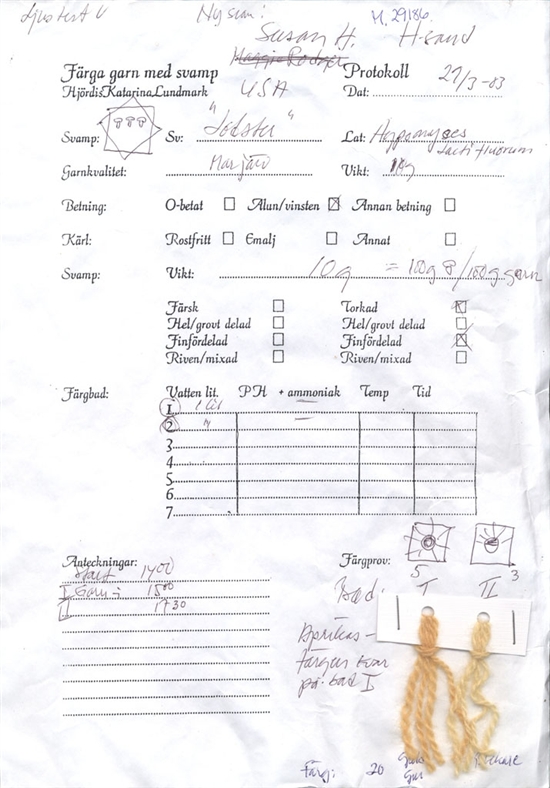 Ljustest U Ny svan: M. 29186.
Susan H. H-sand
Färga garn med svamp Protokoll
Hjördis Katarina Lundmark USA Dat: 27/3-03
Svamp: Sv: "Lobster" Lat: Hypomyces
lactifluorum
Garnkvalitet: Marjäro Vikt: 10g
Betning: O-betat Alun/vinsten Annan betning
Kärl: Rostfritt Emalj Annat
Svamp: Vikt: 10g = 100g /100g garn
Färsk Torkad
Hel/grovt delad Hel/grovt delad
Finfördelad Finfördelad
Riven/mixad Riven/mixad
Färgbad: Vatten lit. PH + ammoniak Temp Tid
1. 1 lit
2. "
3
4
5
6
7
Anteckningar: Färgprov:
Start 1400 5 3
I Garn i 1500 Bad: I II
II 1730
Aprikos-
färgen kvar
på bad I
Färg: 20